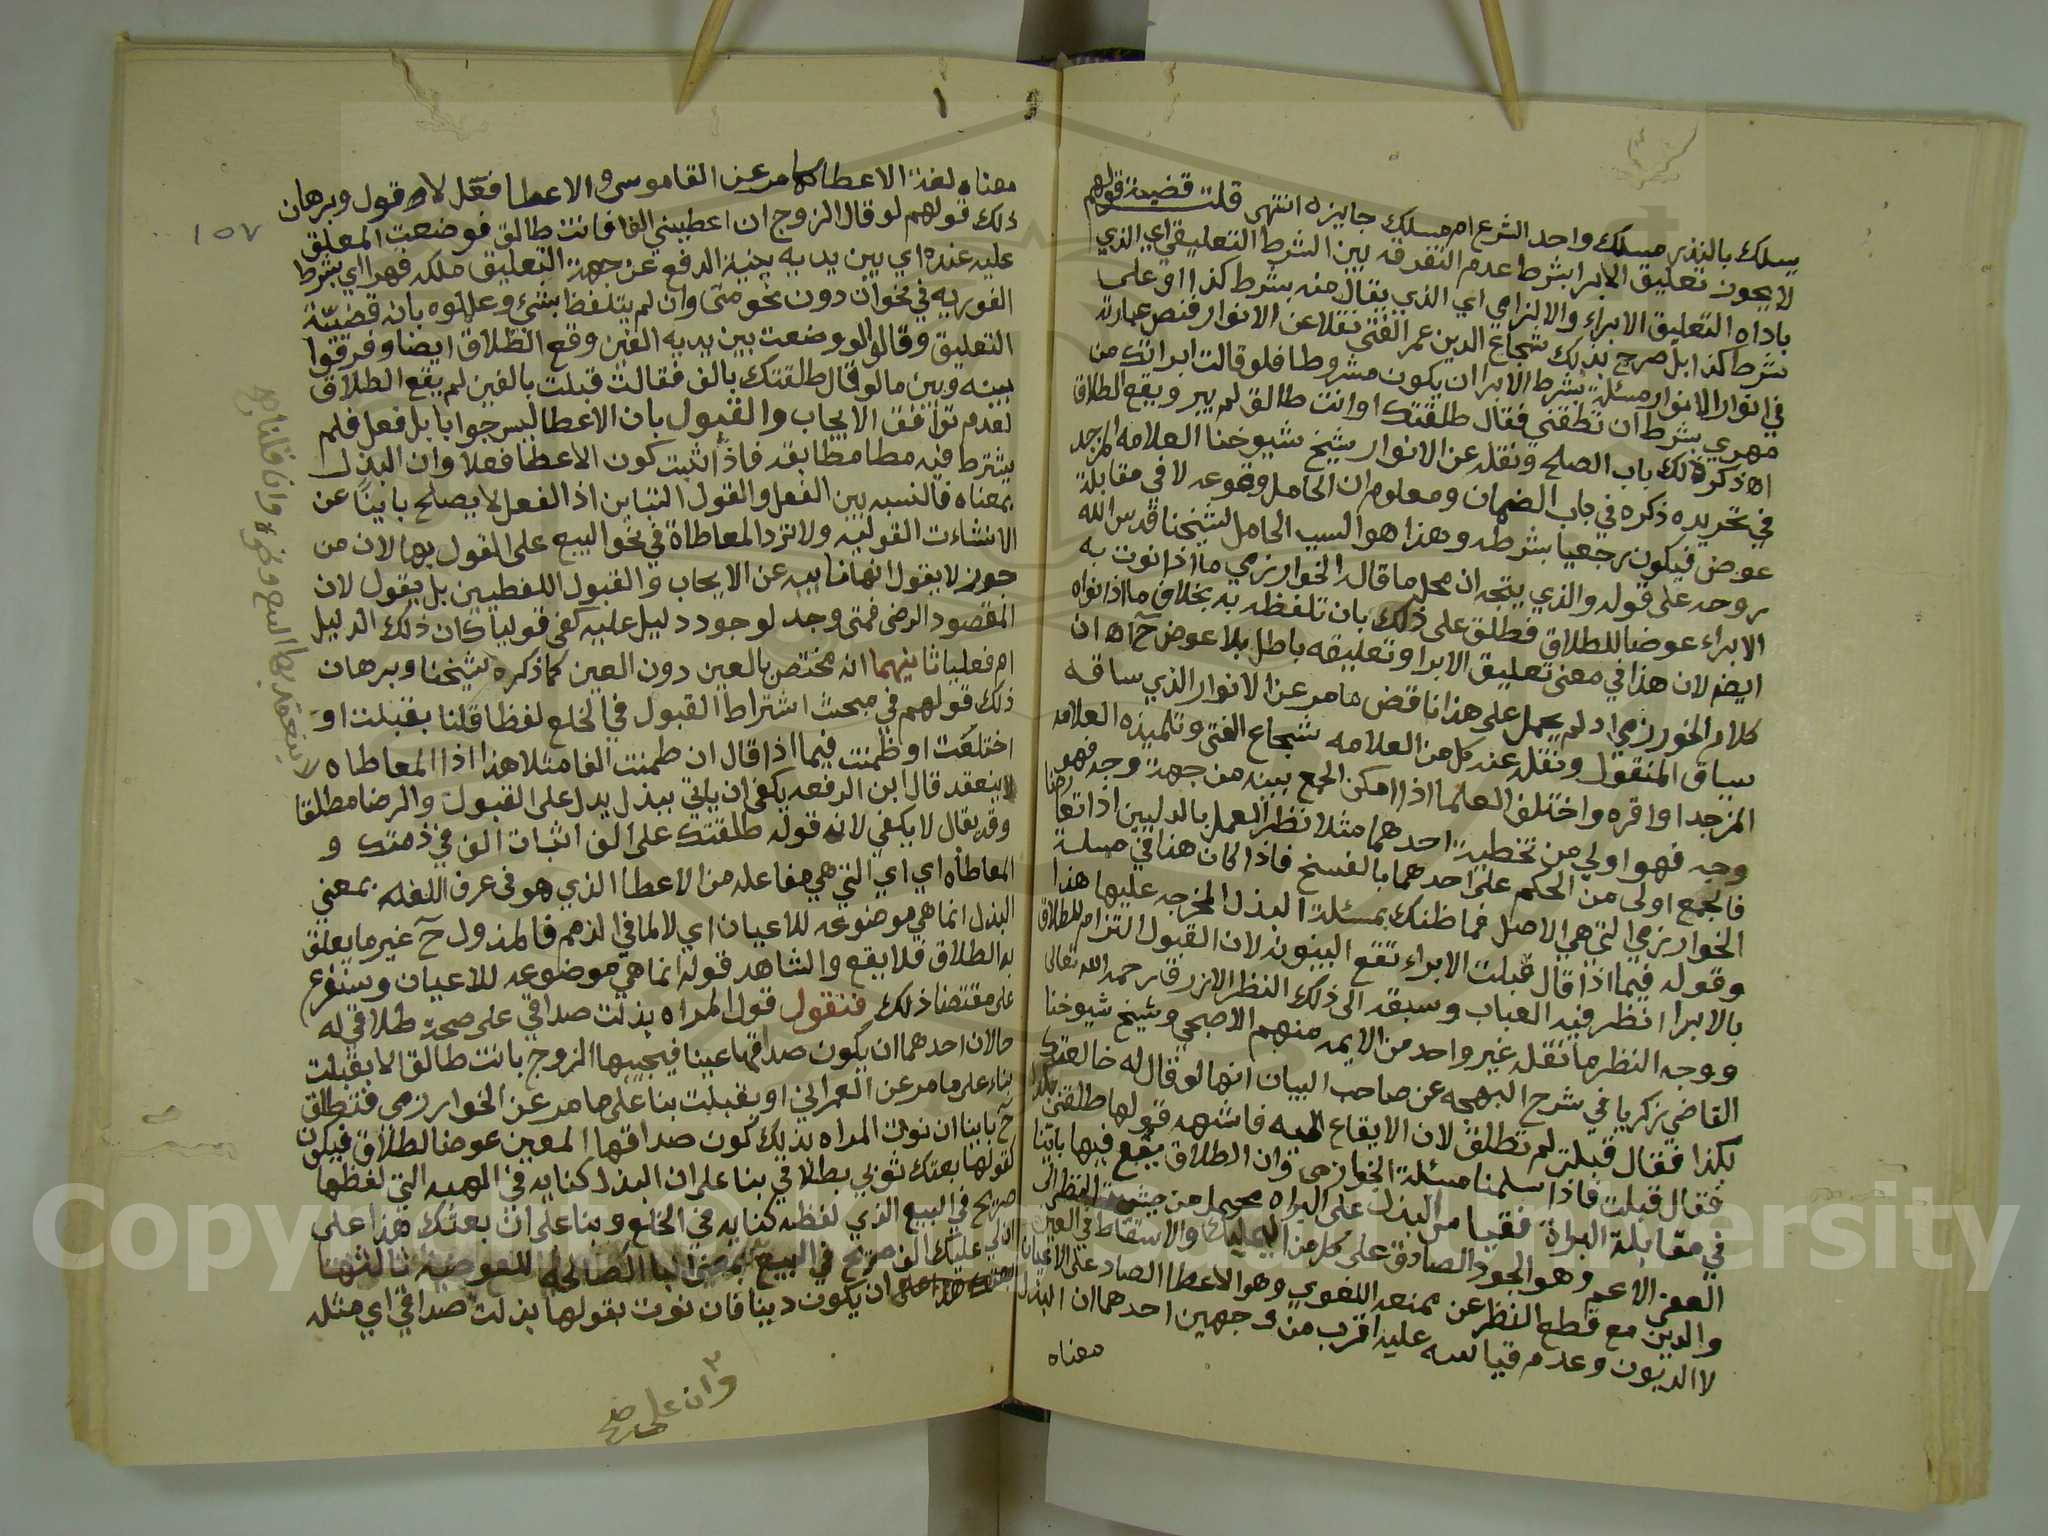 يسلك بالنذر مسلك واحد الشرع ام مسلك جايزه انتهى قلت قضية قولهم
لا يجوز تعليق الابرا بشرط عدم التفرقه بين الشرط التعليقي اي الذي
باداه التعليق الابراء والالزامي اي الذي يقال منه بشرط كذا او على
شرط كذا بل صرح بذلك شجاع الدين عمر الفتى نقلا عن الانوار فنص عبارته
في انوار الانوار مسئلة بشرط الابرا ان يكون مشروطا فلو قالت ابراتك من
مهري بشرط ان تطلقني فقال طلقتك او انت طالق لم يبر ويقع الطلاق
اه ذكره لك باب الصلح ونقله عن الانوار شيخ شيوخنا العلامه المزجد
في تحريره ذكره في باب الضمان ومعلوم ان الحامل وقوعه لا في مقابلة
عوض فيكون رجعيا بشرطه وهذا هو السبب الحامل لشيخنا قدس الله
روحه على قوله والذي يتجه ان محل ما قال الخوارزمي ما اذا نوت به
الابراء عوضا للطلاق فطلق على ذلك بان تلفظه به بخلاف ما اذا نواه
ايضا لان هذا في معنى تعليق الابرا وتعليقه باطل بلا عوض ح اه ان
كلام الخوارزمي اذ لم يحمل على هذا ناقض ما مر عن الانوار الذي ساقه
سياق المنقول ونقله عنه كل من العلامه شجاع الفتى وتلميذه العلامه
المزجد واقره واختلف العلما اذا امكن الجمع بينه من جهة وجه فهو
وجه فهو اولى من تخطية احدهما مثلا نظر العمل بالدليين اذا تعارضا
فالجمع اولى من الحكم على احدهما بالفسخ فاذا كان هنا في مسلة
الخوارزمي التي هي الاصل فما ظنك بمسئلة البذل المخرجه عليها هذا
وقوله فيما اذا قال قبلت الابراء تقع البينونه لان القبول التزام للطلاق
بالابرا انظر فيه العباب وسبقه الى ذلك النظر الازرق رحمه الله تعالى
ووجه النظر ما نقله غير واحد من الايمه منهم الاصبحي وشيخ شيوخنا
القاضي زكريا في شرح البهجه عن صاحب البيان انها لو قال له خالعتك
بكذا فقال قبلت لم تطلق لان الايقاع اليه فاشبه قولها طلقني بكذا
فقال قبلت فاذا سلمنا مسئلة الخوارزمي وان الطلاق يقع فيها باينا
في مقابلة البراة فقياس البذل على البراه من حيثية النظر الى
المعنى الاعم وهو الجود الصادق على كل من التمليك والاسقاط في العين
والدين مع قطع النظر عن معنه اللغوي وهو الاعطا الصاد على الاعيان
لا الديون وعدم قياسه عليه اقرب من وجهين احدهما ان البذل
معناه
١٥٧
معناه لغة الاعطا كما مر عن القاموس والاعطا فعل لا قول وبرهان
ذلك قولهم لو قال الزوج ان اعطيتني الفا فانت طالق فوضعت المعلق
عليه عنده اي بين يديه بنية الدفع عن جهة التعليق ملكه فهرا اي بشرط
الفوريه في نحو ان دون نحو متى وان لم يتلفظ بشي وعللوه بان قضيّة
التعليق وقالوا لو وضعت بين يديه الفين وقع الطلاق ايضا وفرقوا
بينه وبين ما لو قال طلقتك بالف فقالت قبلت بالفين لم يقع الطلاق
لعدم توافق الايجاب والقبول بان الاعطا ليس جوابا بل فعل فلم
يشترط فيه مطا مطابقه فاذا ثبت كون الاعطا فعلا وان البذل
بمعناه فالنسبه بين الفعل والقول التباين اذ الفعل لا يصلح باينا عن
الانشاءات القوليه ولا ترد المعاطاة في نحو البيع على القول بها لان من
جوز لا يقول انها نايبه عن الايجاب والقبول اللفظيين بل يقول لان
المقصود الرضى فمتى وجد لوجود دليل عليه كفى قوليا كان ذلك الدليل
ام فعليا ثانيهما انه مختص بالعين دون العين كما ذكره شيخنا وبرهان
ذلك قولهم في مبحث اشتراط القبول في الخلع لفظا قلنا بقبلت او
اختلعت او ظمنت فيما اذا قال ان ظمنت الفا مثلا هذا اذا المعاطاه
لا ينعقد قال ابن الرفعه يكفي ان ياتي ببذل يدل على القبول والرضا مطلقا
وقد يقال لا يكفي لانه قوله طلقتك على الف اثبات الف في ذمتك و
المعاطاه اي اي التي هي مفاعله من الاعطا الذي هو في عرف اللغه بمعنى
البذل انما هي موضوعه للاعيان اي لا لما في الذمم فالمبذول ح غير ما يعلق
به الطلاق فلا يقع والشاهد قوله انما هي موضوعه للاعيان وسنفرع
على مقتضا ذلك فنقول قول المراه بذلت صداقي على صحة طلاقي له
حالان احدهما ان يكون صداقها عينا فيجيبها الزوج بانت طالق الا بقبلت
بناء على ما مر عن العمراني او بقبلت بنا على ما مر عن الخوارزمي فتطلق
ح باينا ان نوت المراه بذلك كون صداقها المعين عوضا لطلاق فيكون
كقولها بعتك ثوبي بطلاقي بنا على ان البذل كنايه في الهبه التي لفظها
صريح في البيع الذي لفظه كنايه في الخلع وبنا على ان بعتك هذا على
ان لي عليك الف صريح في البيع بمعنى البا الصالحة للعوضيه ثالثها
ان يكون دينا فان نوت بقولها بذلت صداقي اي مثله
وان على صح
لا ينعقد بها البيع ونحوه وان قلنا صح
Copyright © King Saud University